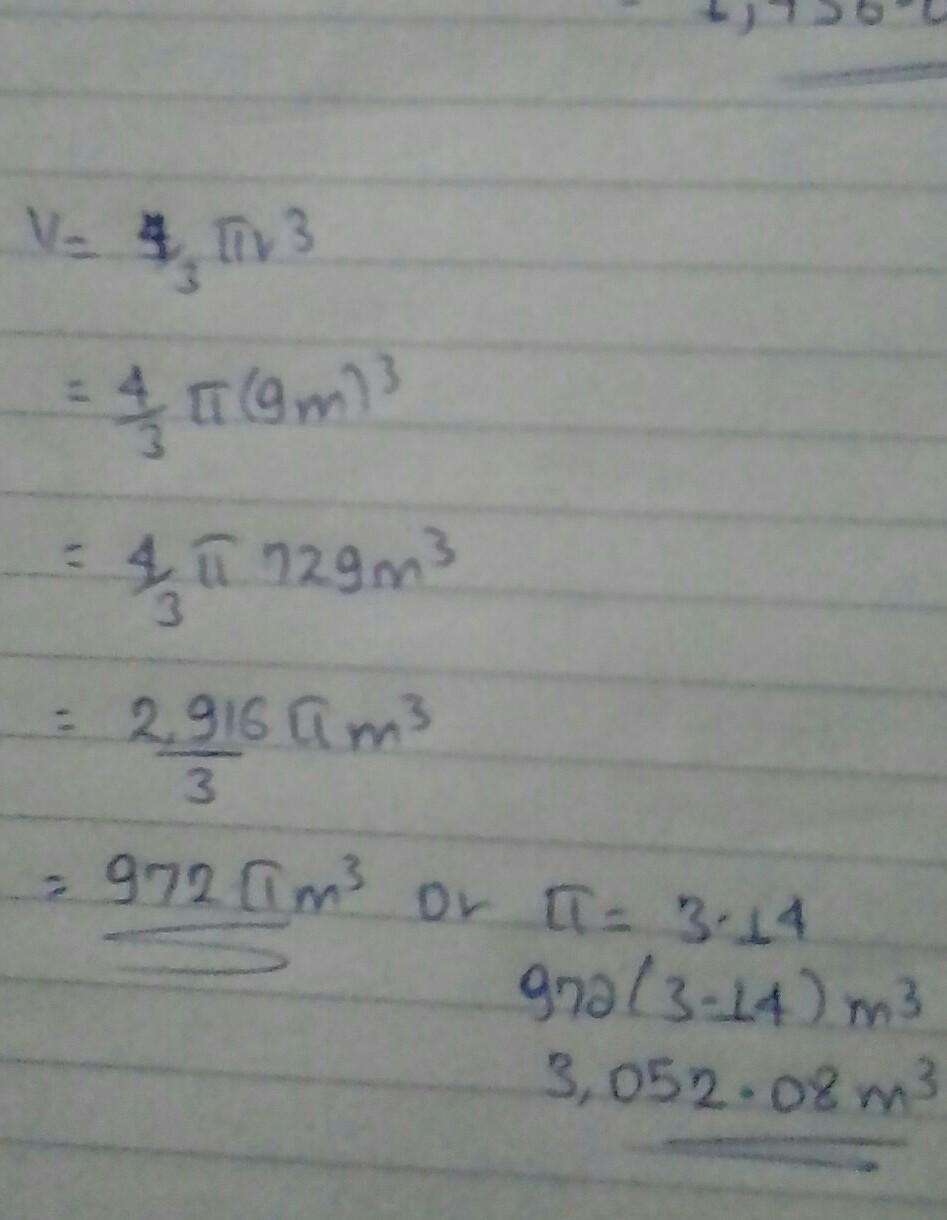 V= 4/3 πr³
= 4/3 π(9m)³
= 4/3 π 729m³
= 2,916πm³/3
= 972πm³ or π= 3.14
972(3.14)m³
3,052.08m³